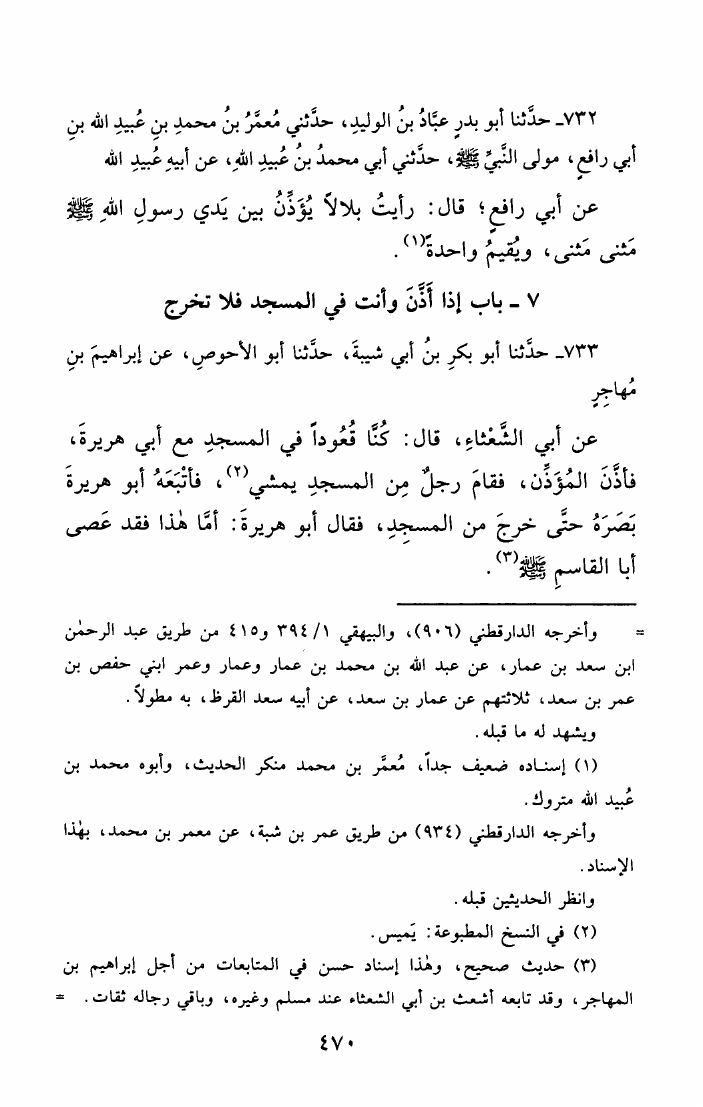 ٧٣٢ـ حدَّثنا أبو بدرٍ عبَّادُ بنُ الوليدِ، حدَّثني مُعمَّرُ بنُ محمدِ بنِ عُبيدِ الله بنِ
أبي رافعٍ، مولى النَّبيِّ ﷺ، حدَّثني أبي محمدُ بنُ عُبيدِ اللهِ، عن أبيهِ عُبيدِ الله
عن أبي رافعٍ؛ قال: رأيتُ بلالاً يُؤَذِّنُ بين يَدي رسولِ اللهِ ﷺ
مَثنى مَثنى، ويُقيمُ واحدةً(١).
٧ ـ باب إذا أَذَّنَ وأنت في المسجد فلا تخرج
٧٣٣ـ حدَّثنا أبو بكرِ بنُ أبي شيبةَ، حدَّثنا أبو الأحوصِ، عن إبراهيمَ بنِ
مُهاجِرٍ
عن أبي الشَّعْثاءِ، قال: كُنَّا قُعُوداً في المسجدِ مع أبي هريرةَ،
فأذَّنَ المُؤَذِّن، فقامَ رجلٌ مِن المسجدِ يمشي(٢)، فأتْبَعَهُ أبو هريرةَ
بَصَرَهُ حتَّى خرجَ من المسجِدِ، فقال أبو هريرةَ: أمَّا هٰذا فقد عَصى
أبا القاسمِ ﷺ(٣).
= وأخرجه الدارقطني (٩٠٦)، والبيهقي ١/ ٣٩٤ و٤١٥ من طريق عبد الرحمٰن
ابن سعد بن عمار، عن عبد الله بن محمد بن عمار وعمار وعمر ابني حفص بن
عمر بن سعد، ثلاثتهم عن عمار بن سعد، عن أبيه سعد القرظ، به مطولاً.
ويشهد له ما قبله.
(١) إسناده ضعيف جداً، مُعمَّر بن محمد منكر الحديث، وأبوه محمد بن
عُبيد الله متروك.
وأخرجه الدارقطني (٩٣٤) من طريق عمر بن شبة، عن معمر بن محمد، بهٰذا
الإسناد.
وانظر الحديثين قبله.
(٢) في النسخ المطبوعة: يَميس.
(٣) حديث صحيح، وهٰذا إسناد حسن في المتابعات من أجل إبراهيم بن
المهاجر، وقد تابعه أشعث بن أبي الشعثاء عند مسلم وغيره، وباقي رجاله ثقات. =
٤٧٠